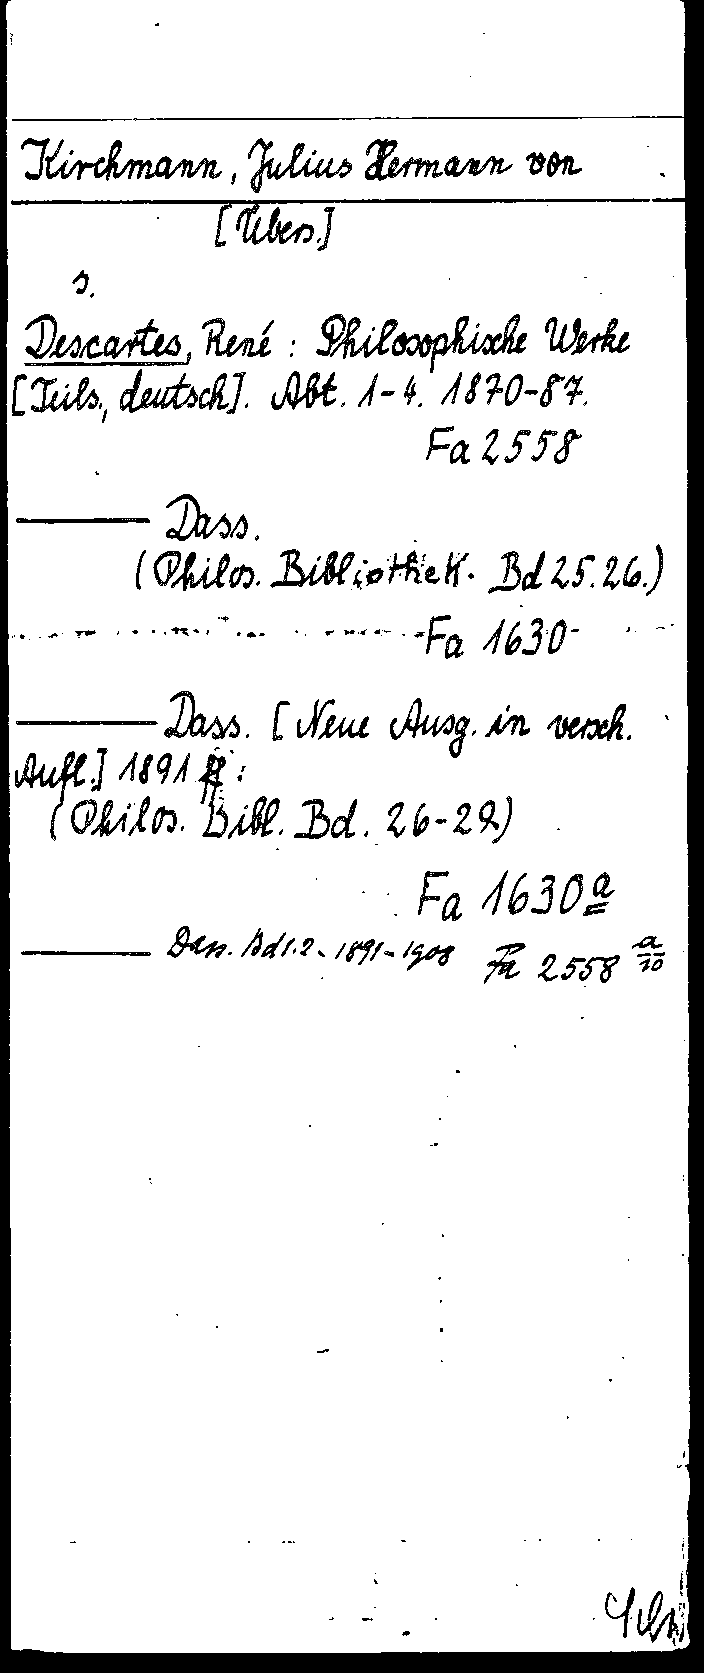 Kirchmann, Julius Hermann von
[Übers.]
s.
Descartes, René: Philosophische Werke
[Teils., deutsch]. Abt. 1-4. 1870-87.
Fa 2558
——— Dass.
(Philos. Bibliothek. Bd 25.26.)
Fa 1630
——— Dass. [Neue Ausg. in versch.
Aufl.] 1891 ff:
(Philos. Bibl. Bd. 26-29)
Fa 1630 a
——— Dass. Bd 1.2. 1891-1908 Fa 2558 a/10